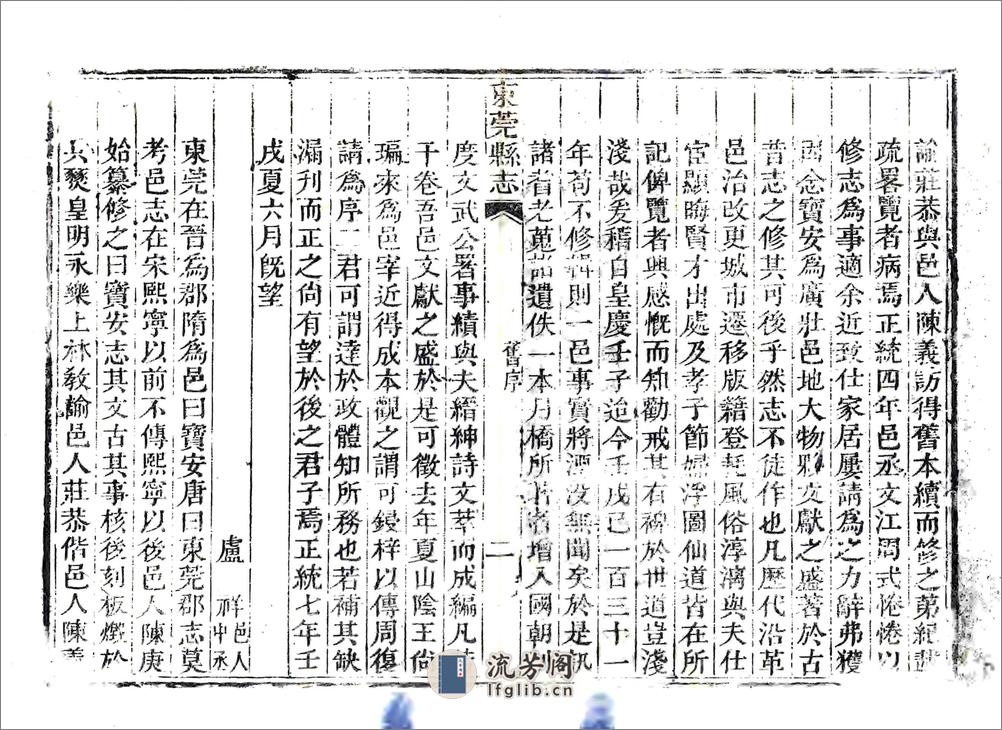 諭莊恭與邑人陳義訪得舊本續而修之第紀載
疏畧覽者病焉正統四年邑丞文江周式惓惓以
修志為事適余近致仕家居屢請為之力辭弗獲
因念寶安為廣壯邑地大物夥文獻之盛著於古
昔志之修其可後乎然志不徒作也凡歷代沿革
邑治改更城市遷移版籍登耗風俗淳漓與夫仕
宦顯晦賢才出處及孝子節婦浮圖仙道皆在所
記俾覽者興感慨而知勸戒其有裨於世道豈淺
淺哉爰稽自皇慶壬子迨今壬戌已一百三十一
年苟不修輯則一邑事實將湮没無聞矣於是訊
諸耆老蒐詢遺佚一本月橋所著者增入國朝
東莞縣志
舊序
二
度文武公署事績與夫縉紳詩文萃而成編凡
干卷吾邑文獻之盛於是可徵去年夏山陰王尚
瑀來為邑宰近得成本觀之謂可鋟梓以傳周復
請為序二君可謂達於政體知所務也若補其缺
漏刊而正之尚有望於後之君子焉正統七年壬
戌夏六月既望
盧祥邑人中丞
東莞在晉為郡隋為邑曰寶安唐曰東莞郡志莫
考邑志在宋熙寧以前不傳熙寧以後邑人陳庚
始纂修之曰寶安志其文古其事核後刻板燬於
兵燹皇明永樂上林教諭邑人莊恭偕邑人陳義
流芳阁
lfglib.cn